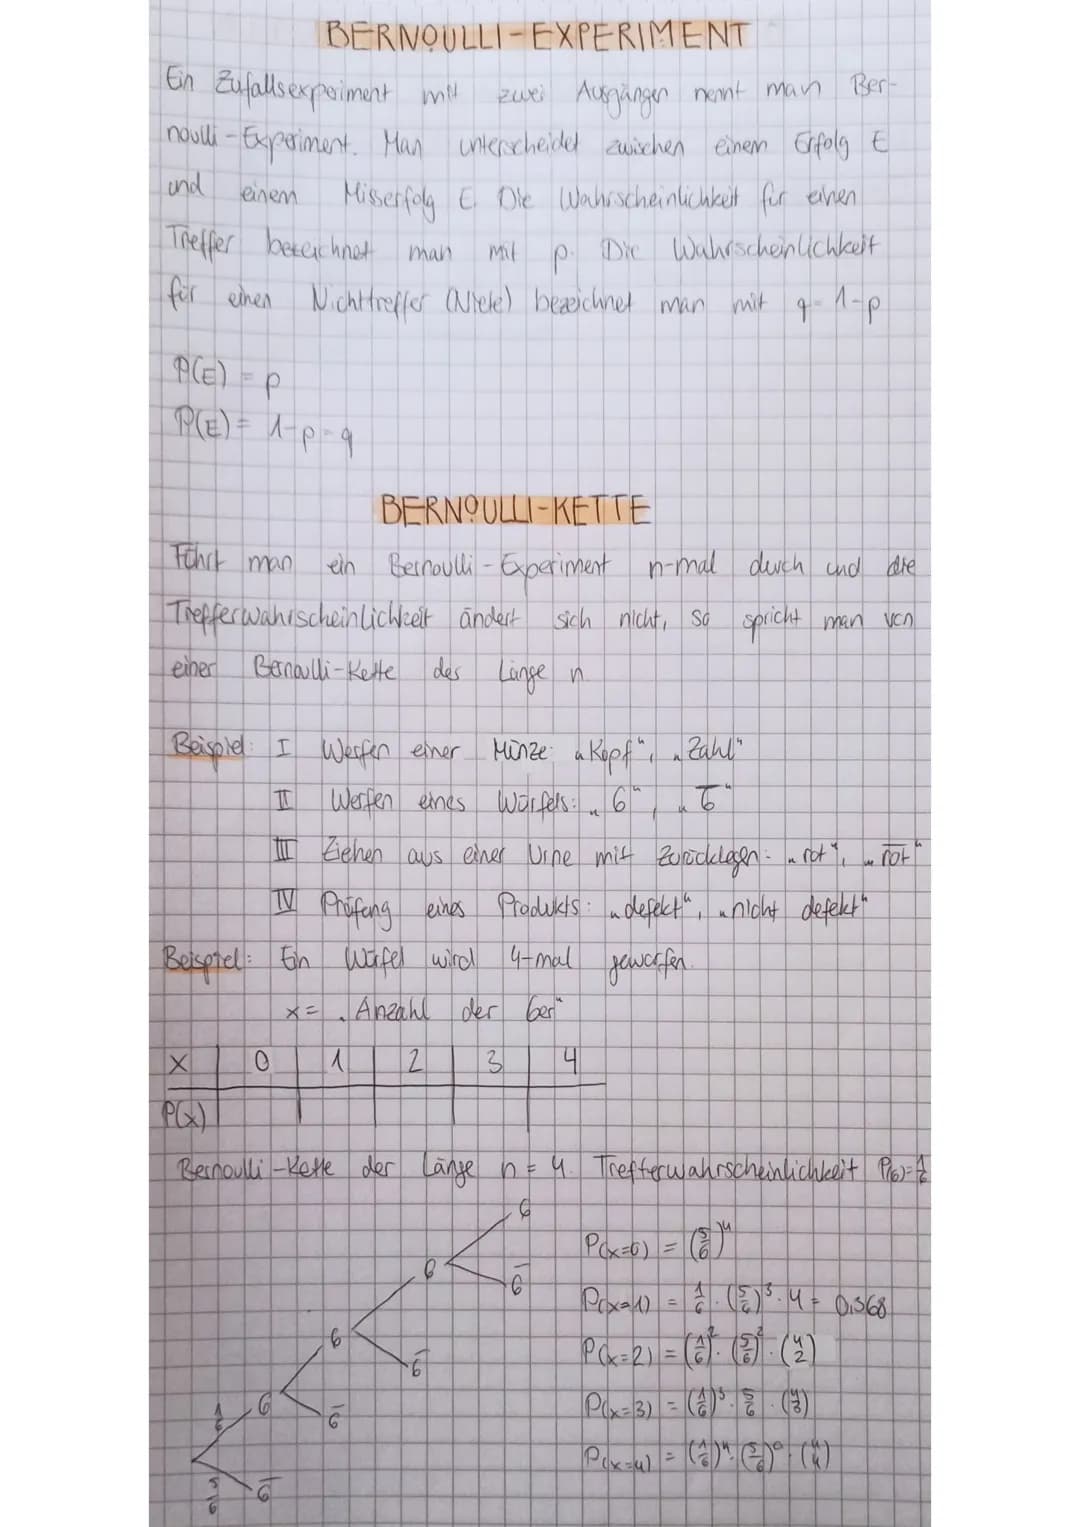 BERNOULLI-EXPERIMENT
Ein Zufallsexperiment mit zwei Ausgängen nennt man Ber-
noulli-Experiment. Man unterscheidet zwischen einem Erfolg E
und einem Misserfolg E. Die Wahrscheinlichkeit für einen
Treffer bezeichnet man mit p. Die Wahrscheinlichkeit
für einen Nichttreffer (Niete) bezeichnet man mit q=1-p
P(E) = p
P(E) = 1-p=q
BERNOULLI-KETTE
Führt man ein Bernoulli-Experiment n-mal durch und die
Trefferwahrscheinlichkeit ändert sich nicht, so spricht man von
einer Bernoulli-Kette des Länge n.
Beispiel: I Werfen einer Münze: „Kopf“, „Zahl“
II Werfen eines Würfels: „6“, „6̅“
III Ziehen aus einer Urne mit Zurücklegen: „rot“, „r̅o̅t̅“
IV Prüfung eines Produkts: „defekt“, „nicht defekt“
Beispiel: Ein Würfel wird 4-mal geworfen.
x = „Anzahl der 6er“
x 0 1 2 3 4
P(x)
Bernoulli-Kette der Länge n = 4. Trefferwahrscheinlichkeit P(6)=1/6
6
6 6̅
6 6̅
1/6 6 6̅
5/6 6̅
P(x=0) = (5/6)⁴
P(x=1) = 1/6 · (5/6)³ · 4 = 0,368
P(x=2) = (1/6)² · (5/6)² · (4 2)
P(x=3) = (1/6)³ · 5/6 · (4 3)
P(x=4) = (1/6)⁴ · (5/6)⁰ · (4 4)